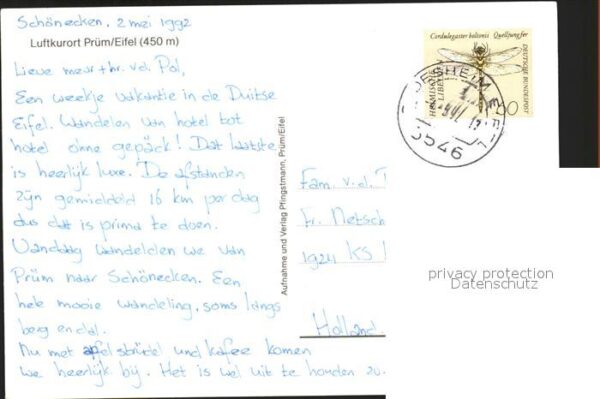 Schönecken, 2 mei 1992
Luftkurort Prüm/Eifel (450 m)
Lieve mevr + hr. v.d. Pol,
Een weekje vakantie in de Duitse
Eifel. Wandelen van hotel tot
hotel ohne gepäck! Dat laatste
is heerlijk luxe. De afstanden
zijn gemiddeld 16 km per dag
dus dat is prima te doen.
Vandaag wandelden we van
Prüm naar Schönecken. Een
hele mooie wandeling, soms langs
berg en dal.
Nu met apfelstrüdel und kafee komen
we heerlijk bij. Het is wel uit te houden zo.
Aufnahme und Verlag Pfingstmann, Prüm/Eifel
Cordulegaster boltonii Quelljungfer
DEUTSCHE BUNDESPOST
HEIMISCHE
LIBELLEN
60
5546
Fam. v.d.
Fr. Netsch
1924 KS
Holland.
privacy protection
Datenschutz